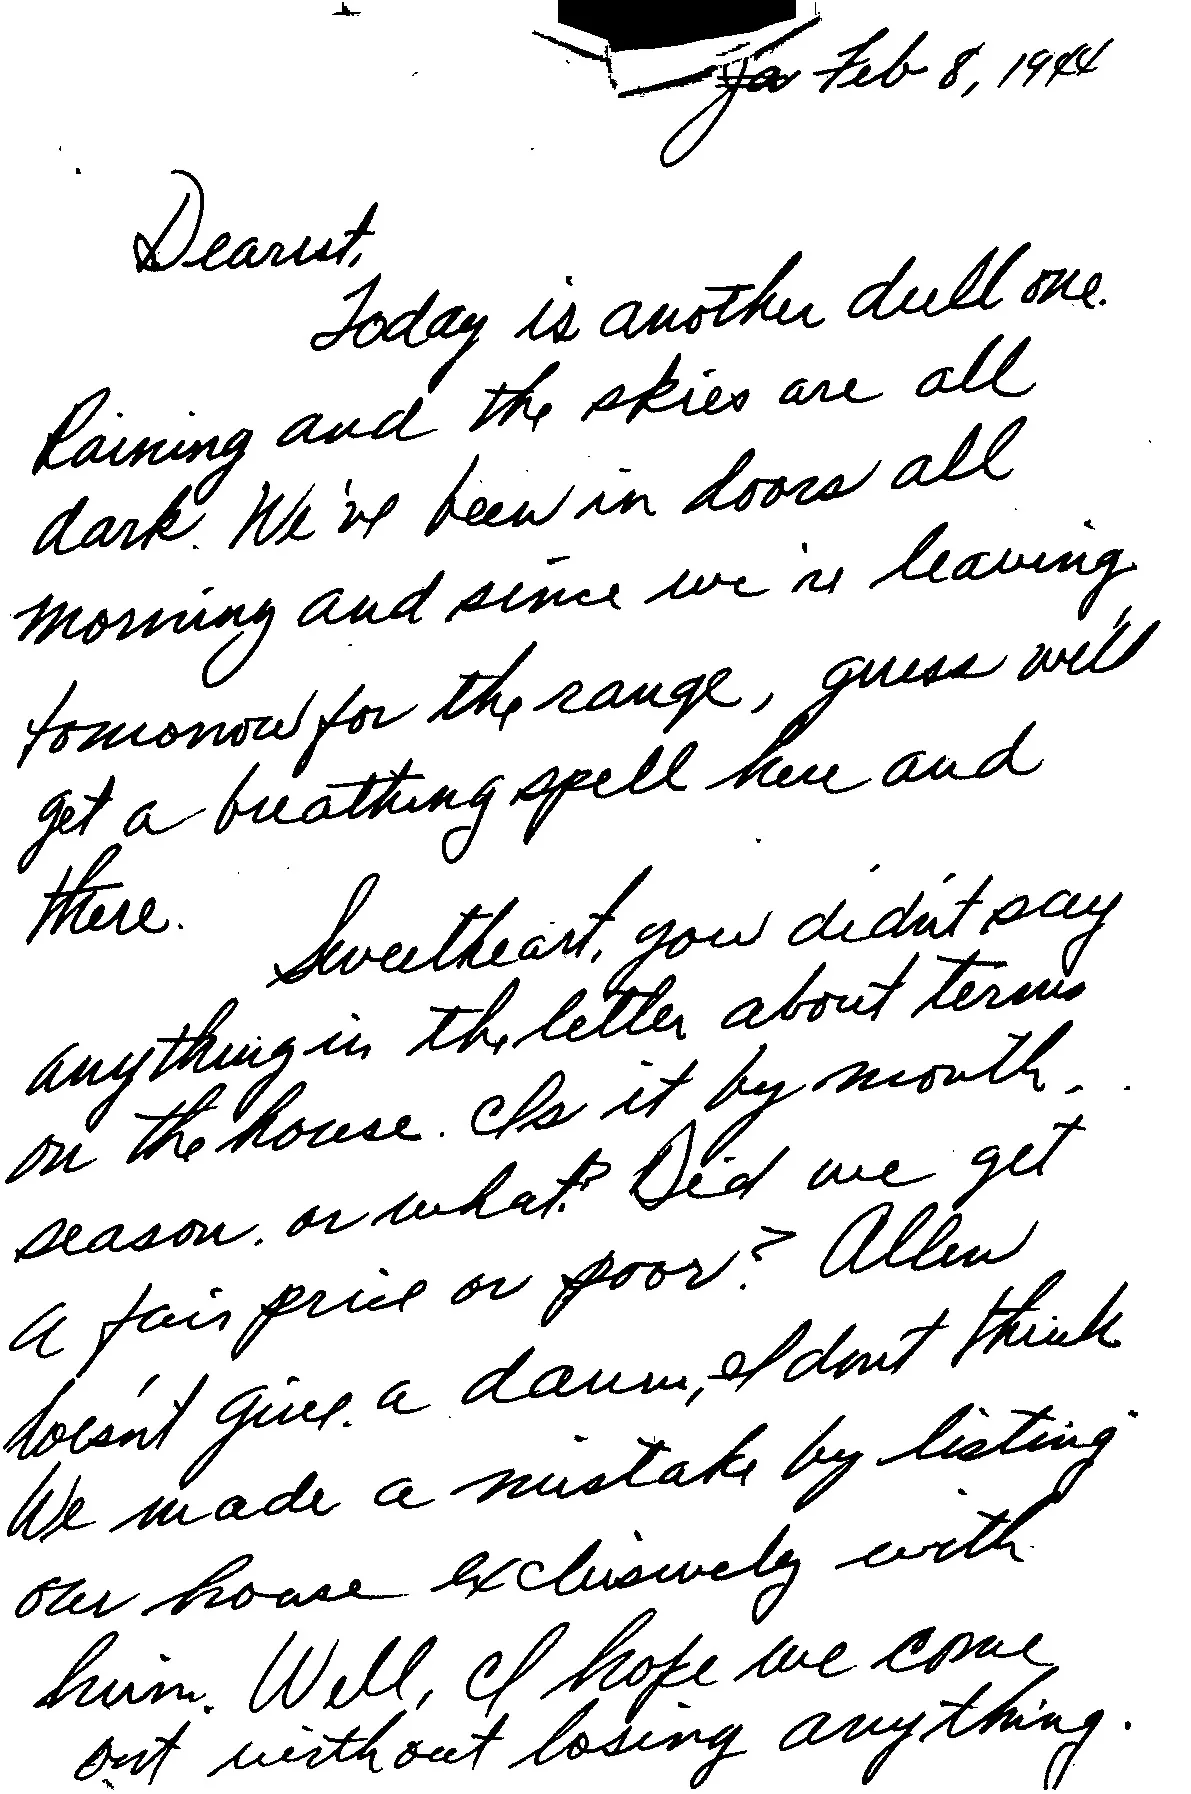 Ja Feb 8, 1944
Dearest,
Today is another dull one.
Raining and the skies are all
dark. We've been in doors all
morning and since we're leaving
tomorrow for the range, guess we'll
get a breathing spell here and
there.
Sweetheart, you didn't say
anything in the letter about terms
on the house. Is it by month,
season, or what? Did we get
a fair price or poor? Allen
doesn't give a damn, I dont think
We made a mistake by listing
our house exclusively with
him. Well, I hope we come
out without losing anything.